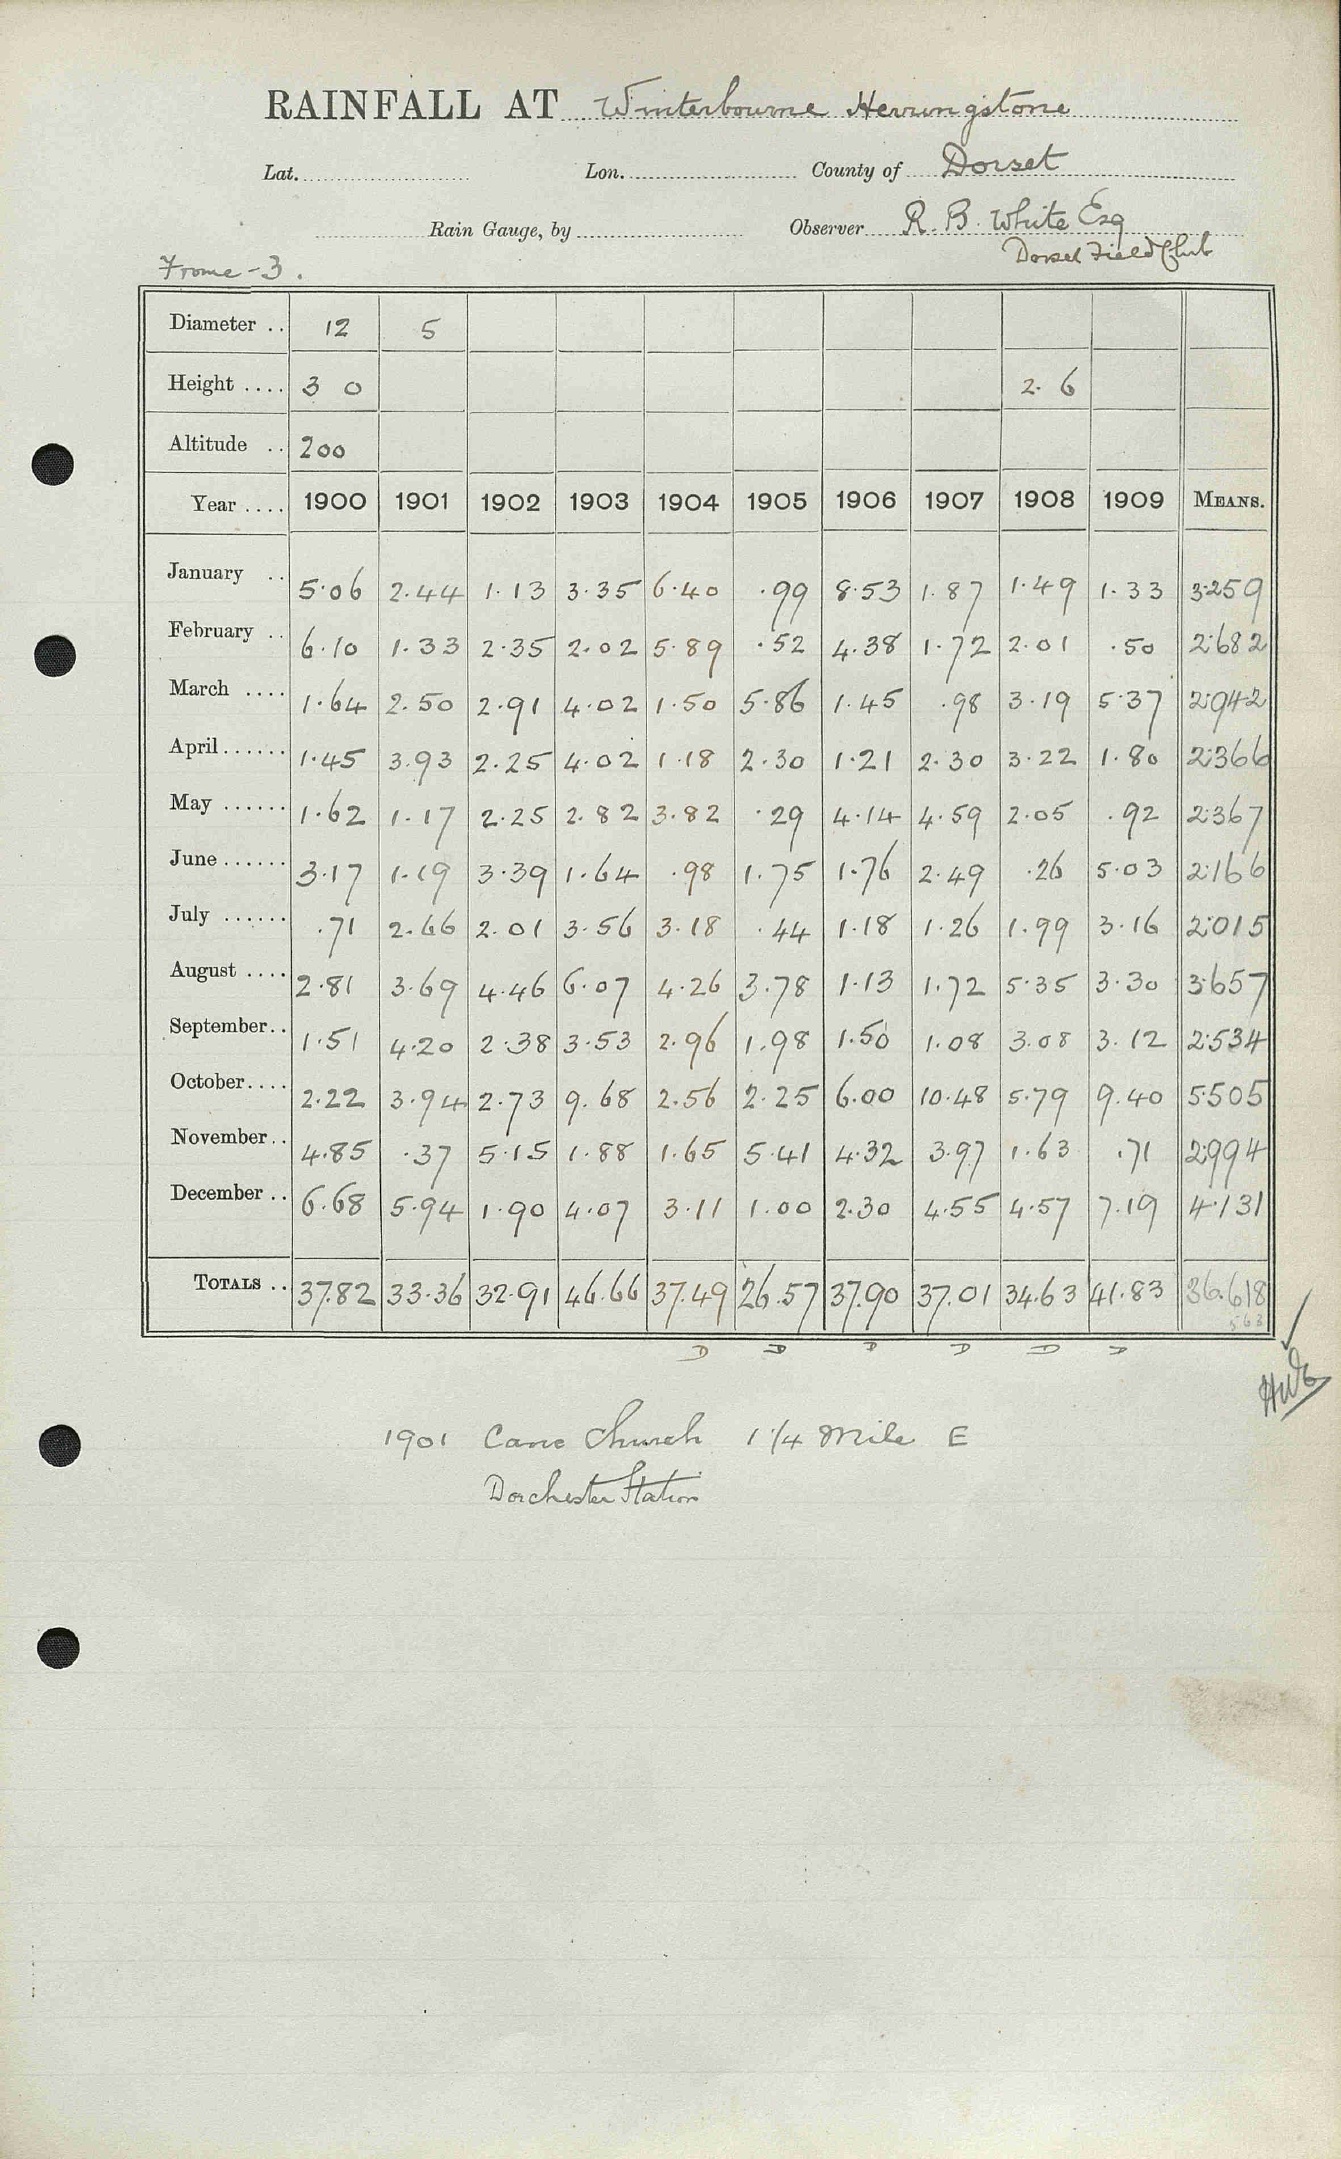 RAINFALL AT Winterbourne Herringstone
Lat. Lon. County of Dorset
Rain Gauge, by Observer R. B. White Esq
Dorset Field Club
Frome - 3.
Diameter .. 12 5
Height .... 3 0 2. 6
Altitude .. 200
Year .... 1900 1901 1902 1903 1904 1905 1906 1907 1908 1909 MEANS.
January .. 5.06 2.44 1.13 3.35 6.40 .99 8.53 1.87 1.49 1.33 3.259
February .. 6.10 1.33 2.35 2.02 5.89 .52 4.38 1.72 2.01 .50 2.682
March .... 1.64 2.50 2.91 4.02 1.50 5.86 1.45 .98 3.19 5.37 2.942
April...... 1.45 3.93 2.25 4.02 1.18 2.30 1.21 2.30 3.22 1.80 2.366
May ...... 1.62 1.17 2.25 2.82 3.82 .29 4.14 4.59 2.05 .92 2.367
June ...... 3.17 1.19 3.39 1.64 .98 1.75 1.76 2.49 .26 5.03 2.166
July ...... .71 2.66 2.01 3.56 3.18 .44 1.18 1.26 1.99 3.16 2.015
August .... 2.81 3.69 4.46 6.07 4.26 3.78 1.13 1.72 5.35 3.30 3.657
September.. 1.51 4.20 2.38 3.53 2.96 1.98 1.50 1.08 3.08 3.12 2.534
October.... 2.22 3.94 2.73 9.68 2.56 2.25 6.00 10.48 5.79 9.40 5.505
November.. 4.85 .37 5.15 1.88 1.65 5.41 4.32 3.97 1.63 .71 2.994
December .. 6.68 5.94 1.90 4.07 3.11 1.00 2.30 4.55 4.57 7.19 4.131
TOTALS .. 37.82 33.36 32.91 46.66 37.49 26.57 37.90 37.01 34.63 41.83 36.618
D D D D D D
1901 Came Church 1 1/4 Mile E
Dorchester Station